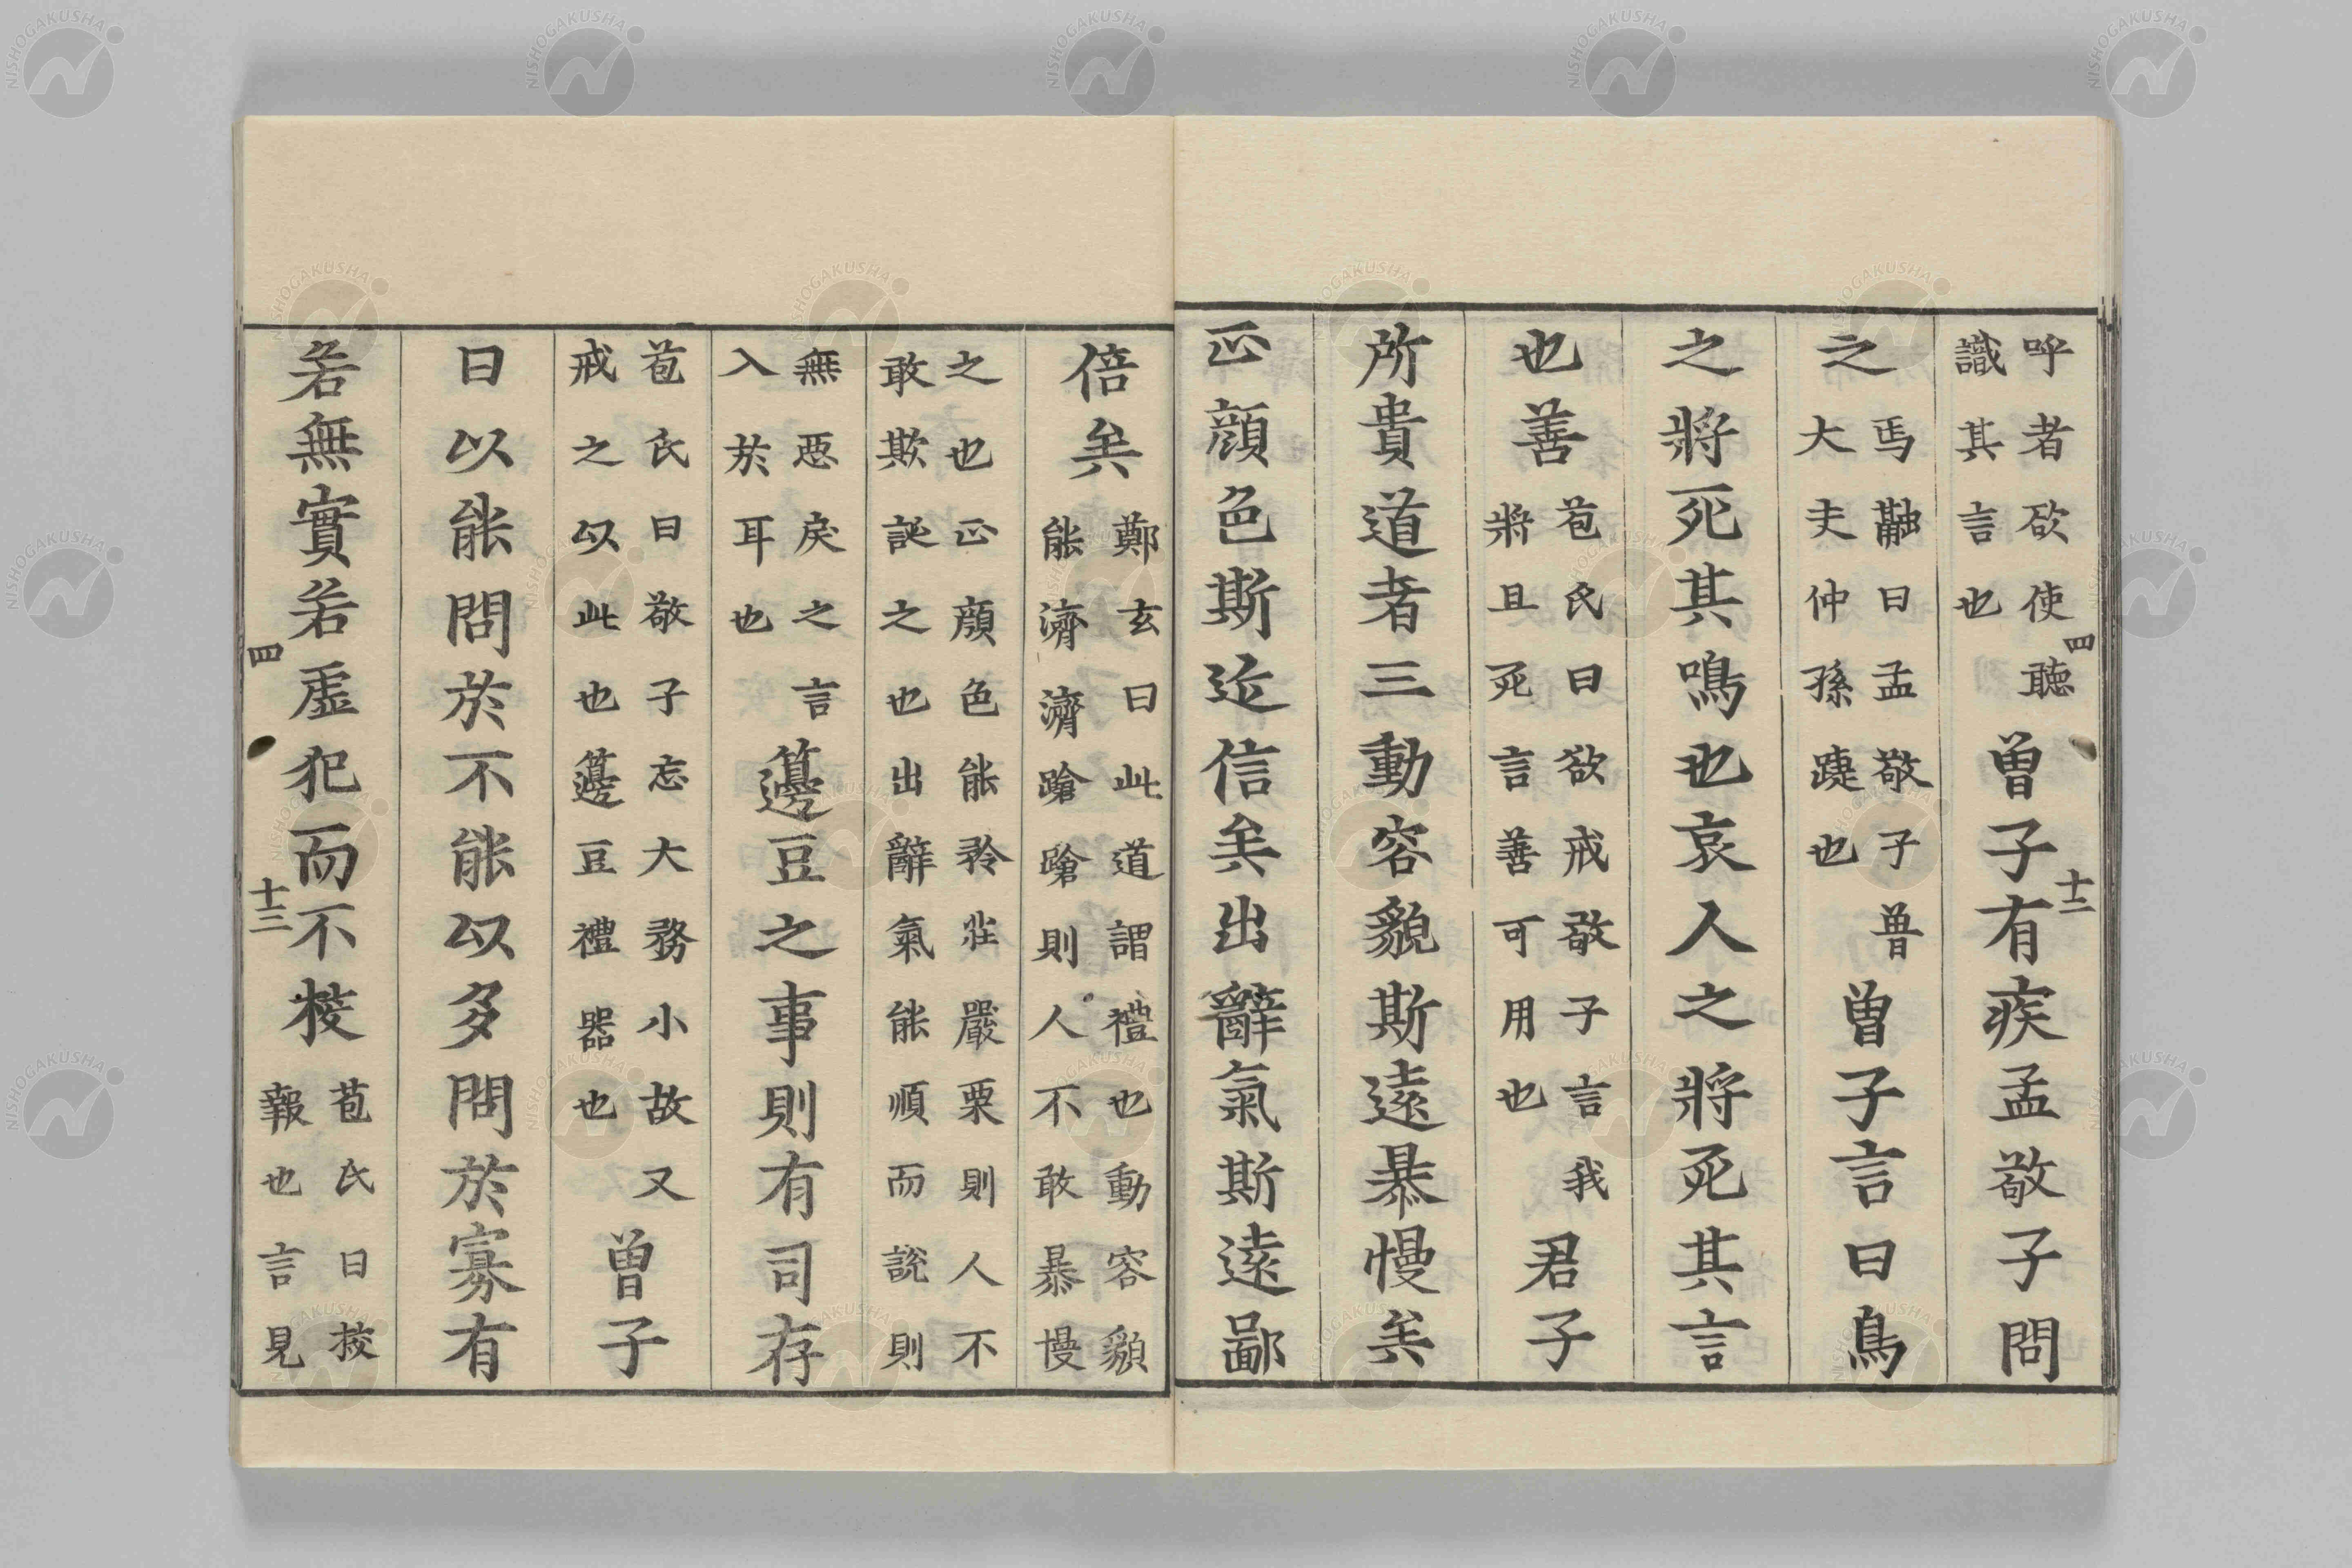 呼者欲使聽識其言也曽子有疾孟敬子問
之馬融曰孟敬子魯大夫仲孫踕也曽子言曰鳥
之將死其鳴也哀人之將死其言
也善苞氏曰欲戒敬子言我將且死言善可用也君子
所貴道者三動容貌斯遠暴慢矣
正顔色斯近信矣出辭氣斯遠鄙
四 十二
倍矣鄭玄曰此道謂禮也動容貌能濟濟蹌蹌則人不敢暴慢
之也正顔色能矜莊嚴栗則人不敢欺誕之也出辭氣能順而說則
無惡戾之言入於耳也籩豆之事則有司存
苞氏曰敬子忘大務小故又戒之以此也籩豆禮器也曽子
曰以能問於不能以多問於寡有
若無實若虛犯而不校苞氏曰校報也言見
四 十三
NISHOGAKUSHA